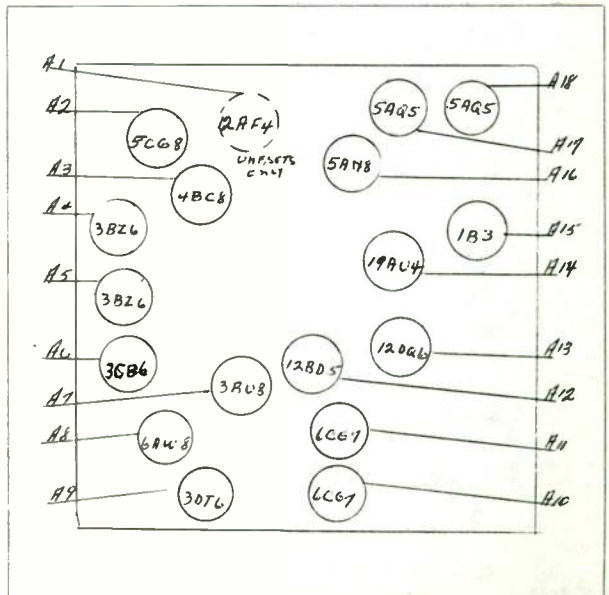 A1
A2
A3
A4
A5
A6
A7
A8
A9
2AF4
UHF SETS
ONLY
5CG8
4BC8
3BZ6
3BZ6
3CB6
3AU8
6AW8
3DT6
5AQ5
5AQ5
5AN8
1B3
19AU4
12DQ6
12BD5
6CG7
6CG7
A18
A17
A16
A15
A14
A13
A12
A11
A10